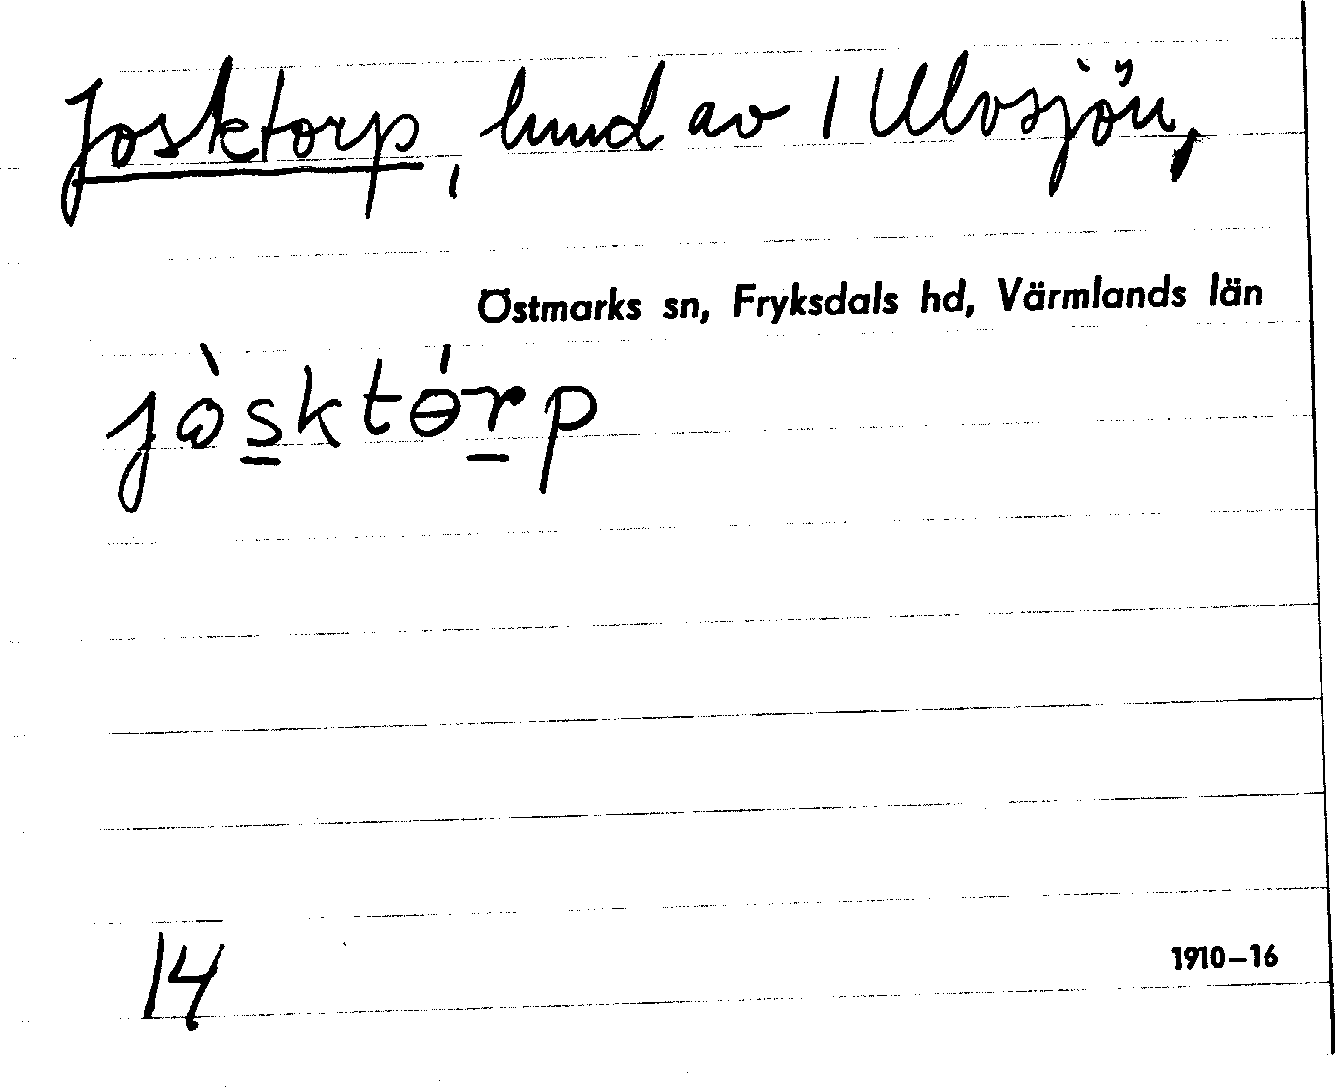 Josktorp, lund av 1 Ulvsjön,
Östmarks sn, Fryksdals hd, Värmlands län
jòs̲ktɵ́r̲p
14
1910–16